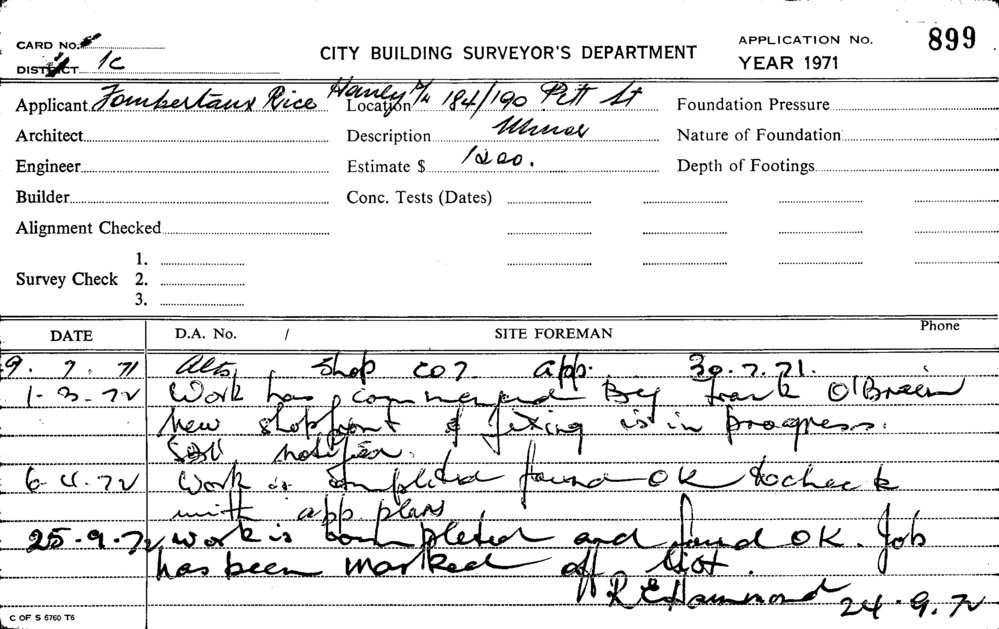 CARD No.
CITY BUILDING SURVEYOR'S DEPARTMENT
APPLICATION No. 899
DISTRICT 1C
YEAR 1971
Applicant Fombertaux Rice Hanly
Location 184/190 Pitt St
Foundation Pressure
Architect
Description Minor
Nature of Foundation
Engineer
Estimate $ 1200.
Depth of Footings
Builder
Conc. Tests (Dates)
Alignment Checked
1.
Survey Check 2.
3.
DATE D.A. No. / SITE FOREMAN Phone
9. 7. 71 Alts, Shop app. 30.7.71.
1-3.72 Work has commenced By Frank O'Brein
new shopfront & fixing is in progress.
notified.
6.4.72 Work is completed found OK to check
with app. plans
25.9.72 work is completed and found OK. Job
has been marked off list.
R E Hammond 24.9.72
C OF S 6760 T6